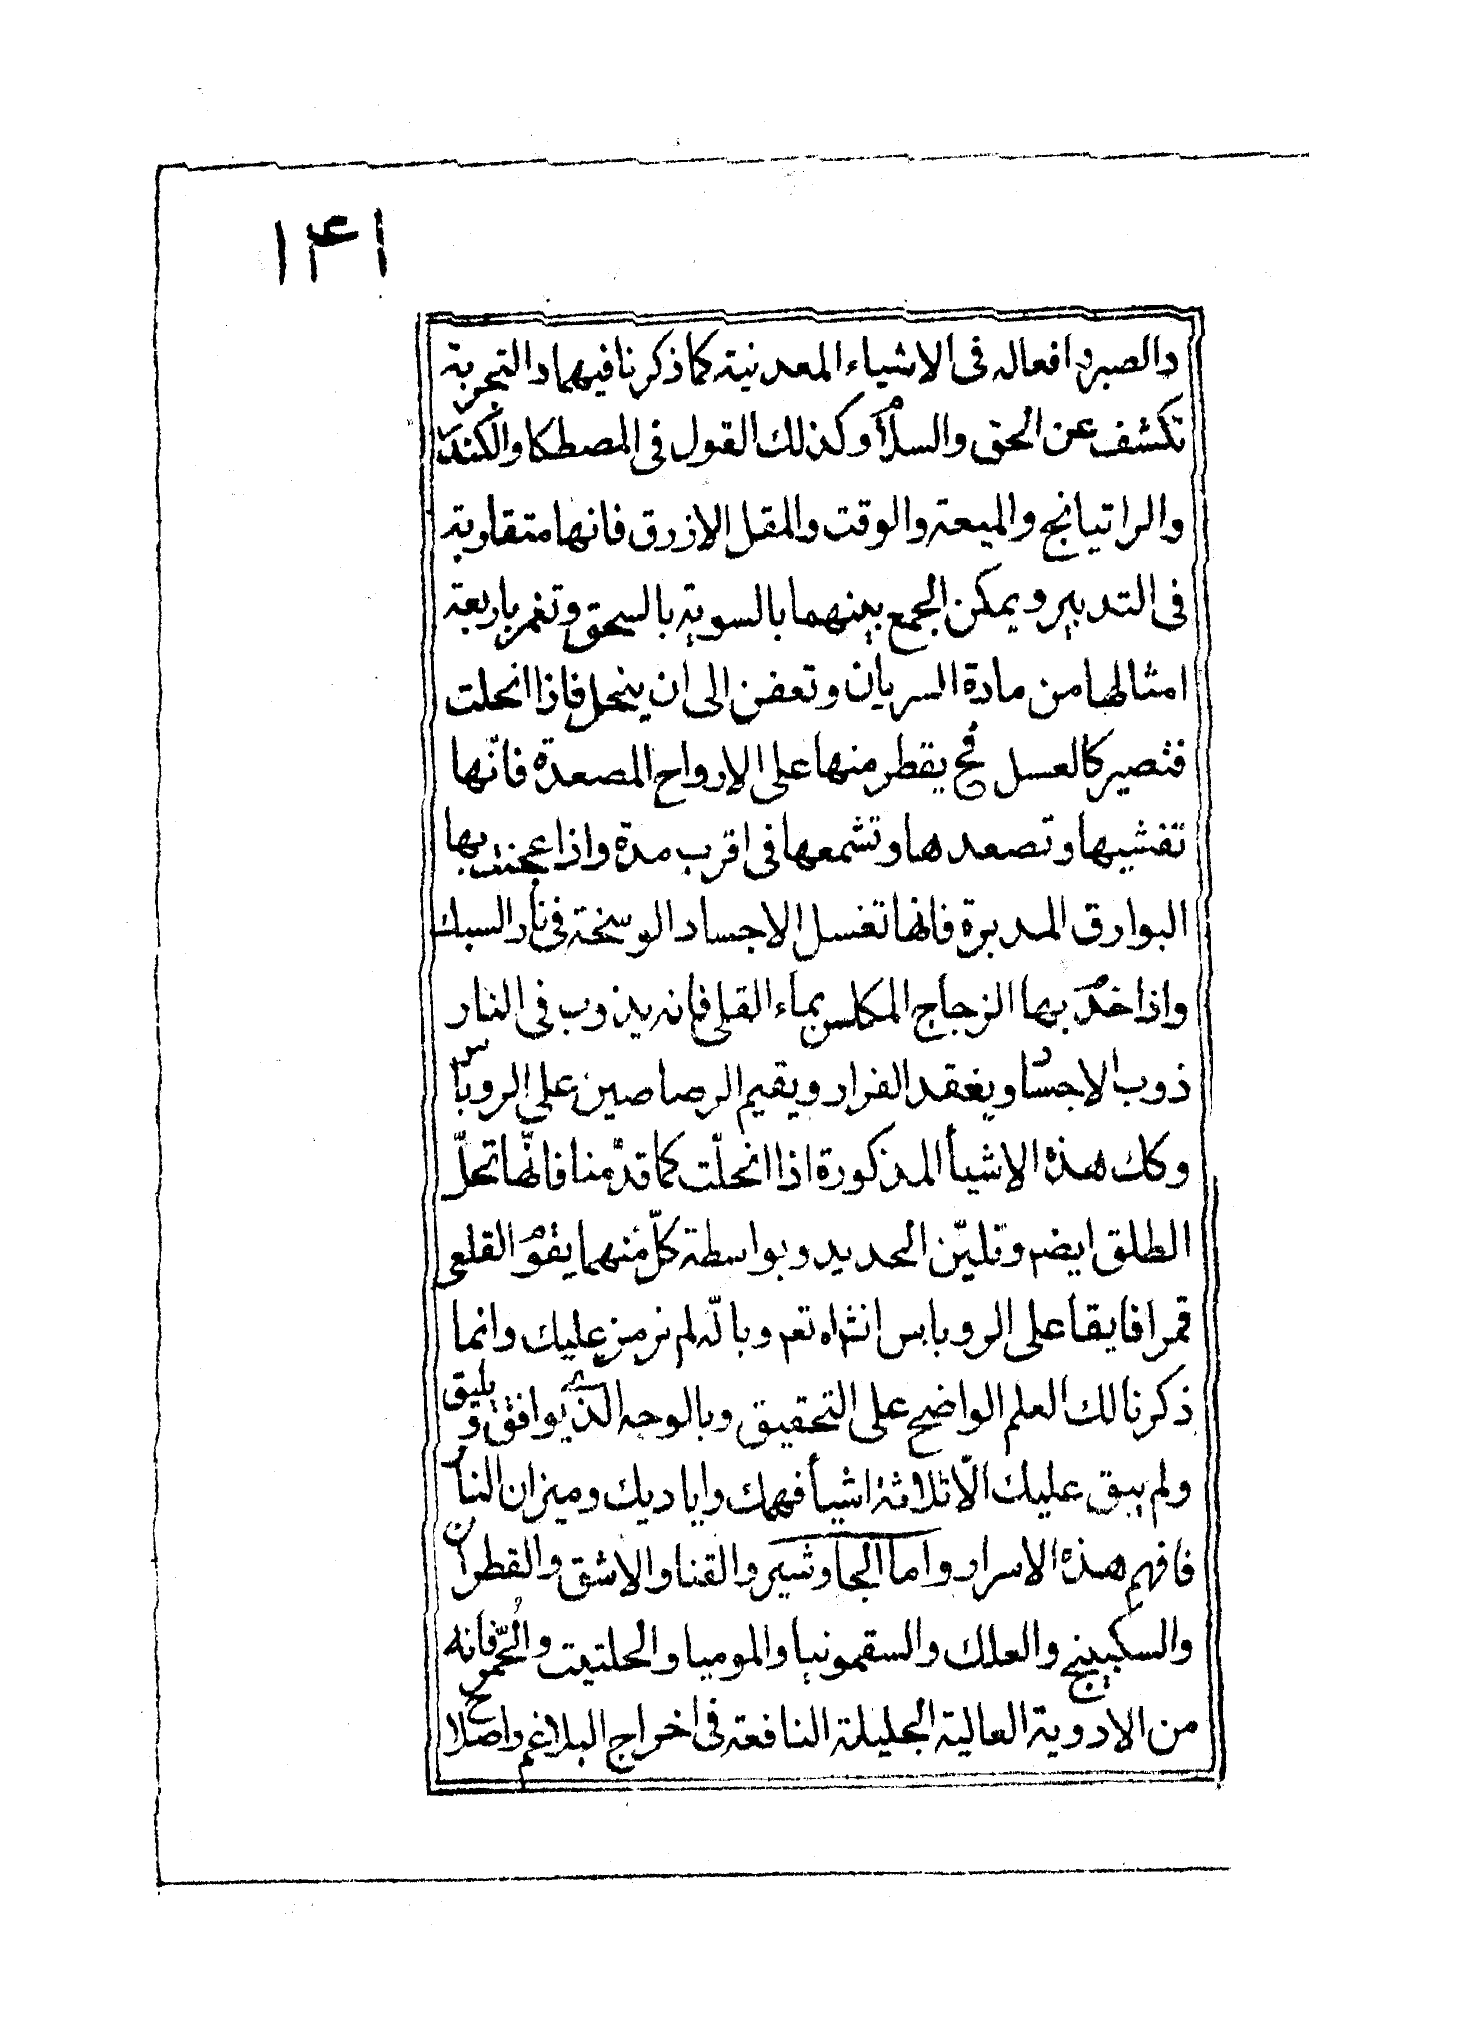 ۱۴۱
والصبر وافعاله فى الاشياء المعدنية كما ذكرنا فيهما والتجربة
تكشف عن الحق والسلام وكذلك القول فى المصطكا والكندر
والراتيانج والميعة والوقت والمقل الازرق فانها متقاربة
فى التدبير ويمكن الجمع بينهما بالسوية بالسحق وتغمر باربعة
امثالها من مادة السريان وتعفن الى ان ينحل فاذا انحلت
فتصير كالعسل فح يقطر منها على الارواح المصعدة فانّها
تفشيها وتصعدها وتشمعها فى اقرب مدة واذا عجنت بها
البوارق المدبرة فانها تغسل الاجساد الوسخة فى نار السبك
واذا خدم بها الزجاج المكلس بماء القلى فانه يذوب فى النار
ذوب الاجساد ويعقد الفرار ويقيم الرصاصين على الروباس
وكك هذه الاشيأ المذكورة اذا انحلّت كما قدّمنا فانّها تحلّ
الطلق ايضم وتليّن الحديد وبواسطة كلّ منهما يقوم القلعى
قمرا فايقا على الروباس انشاه تعم وبالله لم نرمز عليك وانما
ذكرنا لك العلم الواضح على التحقيق وبالوجه الذى يوافق ويليق
ولم يبق عليك الّا ثلاثة اشيأ فهمك واياديك وميزان النار
فافهم هذه الاسرار واما الجاوشير والقنا والاشق والقطران
والسكبينج والعلك والسقمونيا والموميا والحلتيت فانه
من الادوية العالية الجليلة النافعة فى اخراج البلاغم واصلاح